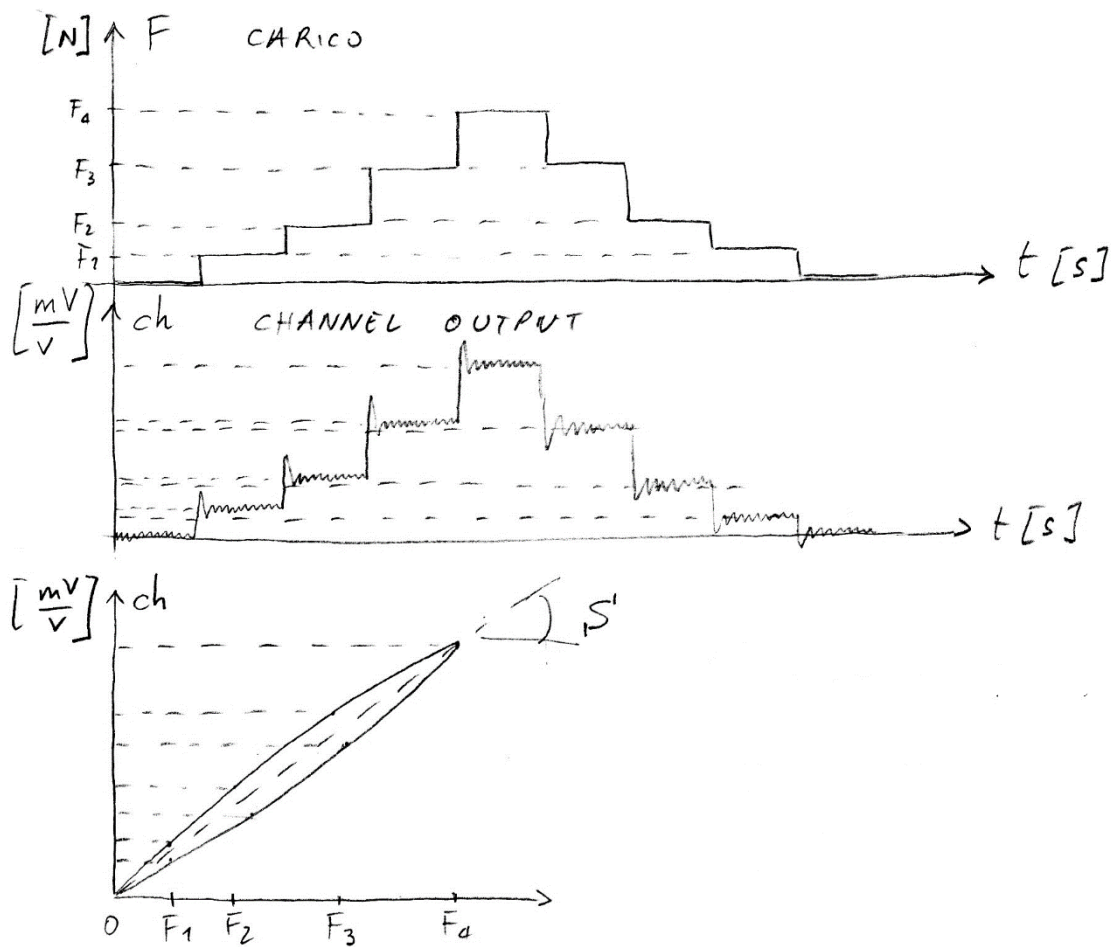 [N] F CARICO
F4
F3
F2
F1
t [s]
[mV/V] ch CHANNEL OUTPUT
t [s]
[mV/V] ch
S
0 F1 F2 F3 F4